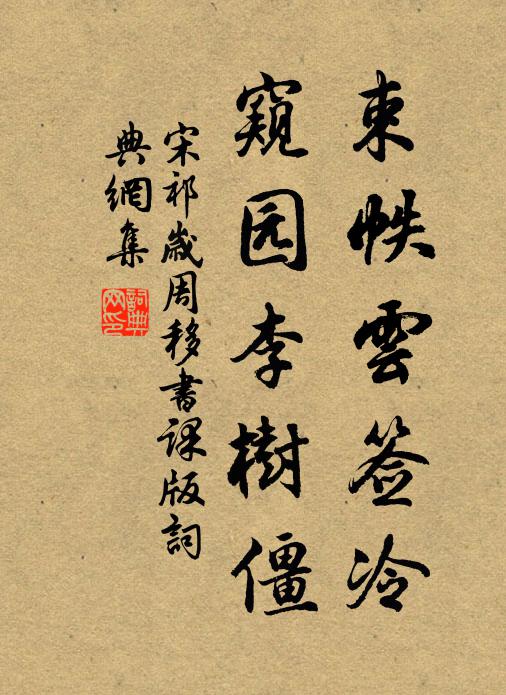 束帙雲签冷
窺园李樹僵
宋祁歲周移書課版詞
典網集
詞典
网印